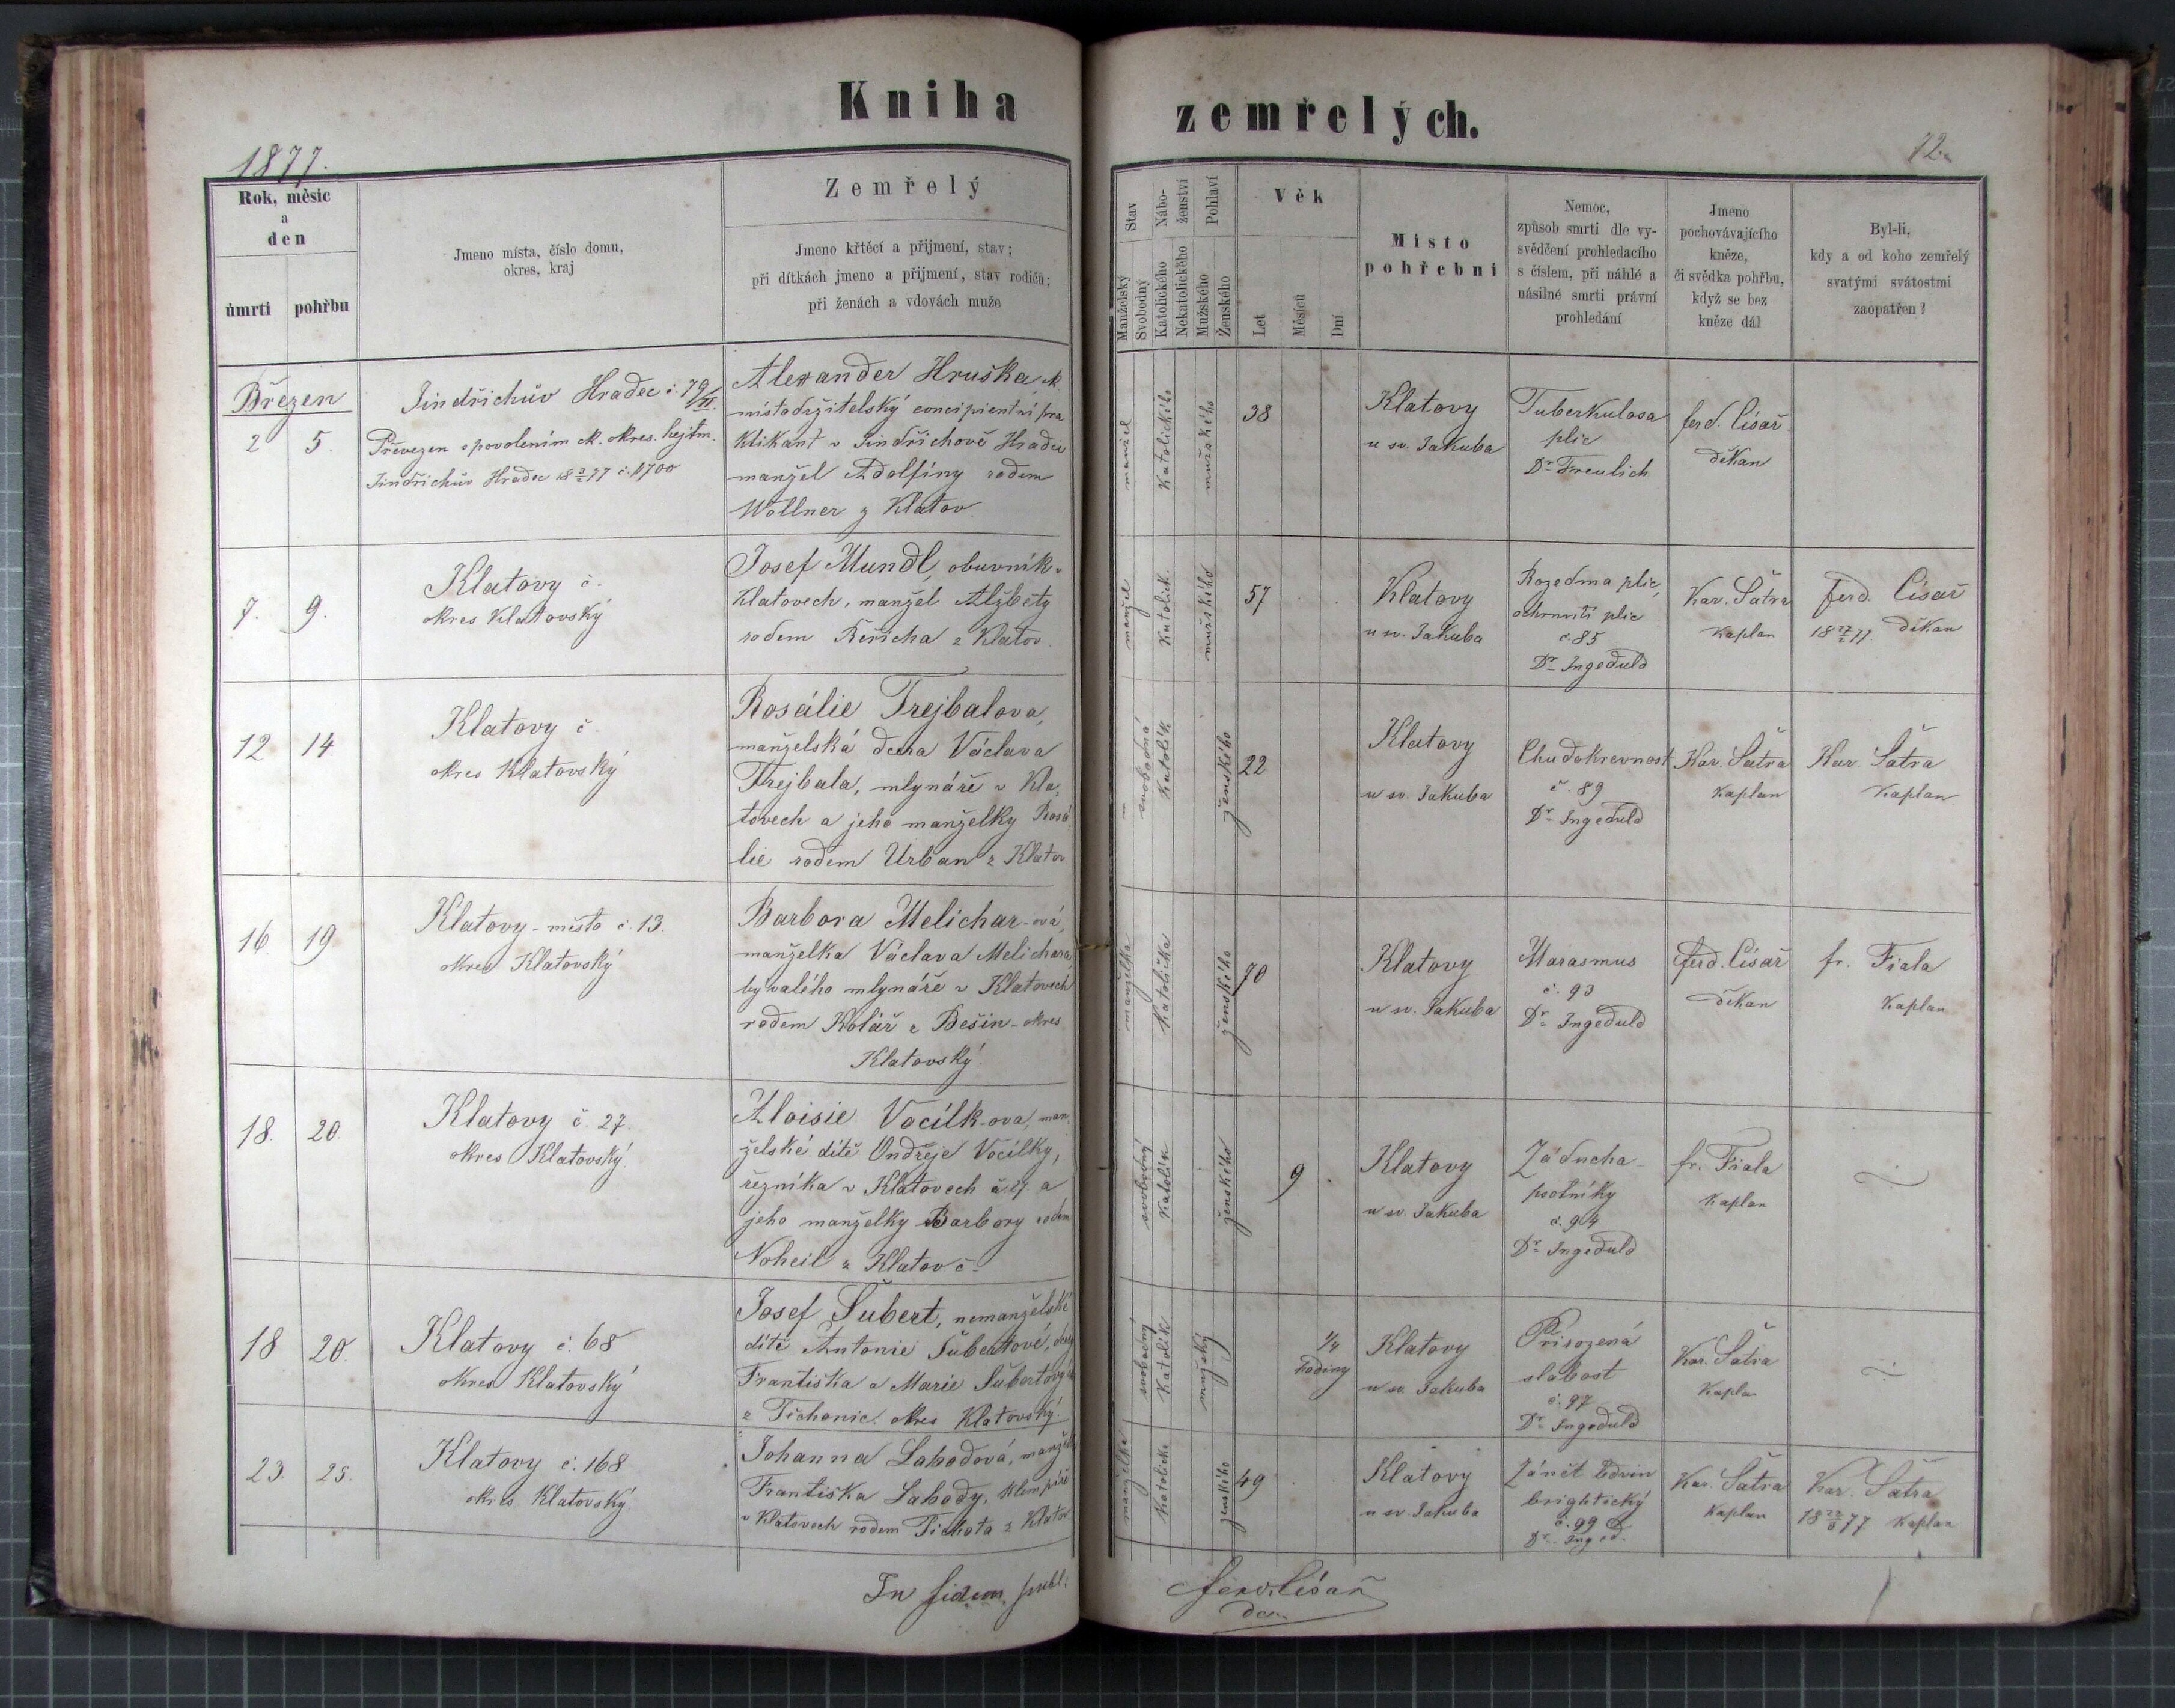 Kniha zemřelých.
1877.
72.
Rok, měsíc
a
den
úmrtí
pohřbu
Jmeno místa, číslo domu,
okres, kraj
Zemřelý
Jmeno křtěcí a přijmení, stav;
při dítkách jmeno a přijmení, stav rodičů;
při ženách a vdovách muže
Stav
Manželský
Svobodný
Nábo-
ženství
Katolického
Nekatolického
Pohlaví
Mužského
Ženského
Věk
Let
Měsíců
Dní
Místo
pohřební
Nemoc,
způsob smrti dle vy-
svědčení prohledacího
s číslem, při náhlé a
násilné smrti právní
prohledání
Jmeno
pochovávajícího
kněze,
či svědka pohřbu,
když se bez
kněze dál
Byl-li,
kdy a od koho zemřelý
svatými svátostmi
zaopatřen?
Březen
2
5.
Jindřichův Hradec č. 79/II.
Převezen s povolením ck. okres. hejtm.
Jindřichův Hradec 18 2/3 77 č. 1700
Alexander Hruška, ck
místodržitelský concipientní pra
ktikant v Jindřichově Hradci
manžel Adolfiny rodem
Wollner z Klatov
manžel
Katolického
mužského
38
Klatovy
u sv. Jakuba
Tuberkulosa
plic
Dr. Freulich
ferd. Císař
děkan
7.
9.
Klatovy č.
okres Klatovský
Josef Mundl, obuvník v
Klatovech, manžel Alžběty
rodem Řeřicha z Klatov
manžel
Katolick.
mužského
57
Klatovy
u sv. Jakuba
Rozedma plic,
ochrnutí plic
č. 85
Dr. Ingeduld
Kar. Šatra
kaplan
ferd. Císař
18 27/2 77. děkan
12
14.
Klatovy č.
okres Klatovský
Rosálie Trejbalova,
manželská dcera Václava
Trejbala, mlynáře v Kla-
tovech a jeho manželky Rosá-
lie rodem Urban z Klatov
svobodná
Katolík
ženského
22
Klatovy
u sv. Jakuba
Chudokrevnost
č. 89
Dr. Ingeduld
Kar. Šatra
kaplan
Kar. Šatra
kaplan.
16
19
Klatovy - město č. 13.
okres Klatovský
Barbora Melichar-ová,
manželka Václava Melichara
bývalého mlynáře v Klatovech
rodem Kolář z Bešin - okres
Klatovský
manželka
Katolička
ženského
70
Klatovy
u sv. Jakuba
Marasmus
č. 93
Dr. Ingeduld
ferd. Císař
děkan
fr. Fiala
kaplan
18.
20.
Klatovy č. 27.
okres Klatovský
Aloisie Vocílk-ova, man-
želské dítě Ondřeje Vocílky,
řezníka v Klatovech č. 27. a
jeho manželky Barbory rodem
Noheil z Klatov č.
svobodný
Katolík
ženského
9
Klatovy
u sv. Jakuba
Záducha -
psotníky
č. 94
Dr. Ingeduld
fr. Fiala
kaplan
18
20.
Klatovy č. 68
okres Klatovský
Josef Šubert, nemanželské
dítě Antonie Šubertové, dcery
Františka a Marie Šubertových
z Tichonic. okres Klatovský.
svobodný
Katolík
mužský
1/4
hodiny
Klatovy
u sv. Jakuba
Přirozená
slabost
č. 97
Dr. Ingeduld
Kar. Šatra
kaplan
23.
25.
Klatovy č. 168
okres Klatovský
Johanna Labodová, manželka
Františka Labody, klempíře
v Klatovech rodem Tichota z Klatov.
manželka
Katolička
ženského
49
Klatovy
u sv. Jakuba
Zánět ledvin
brightický
č. 99
Dr. Inged.
Kar. Šatra
kaplan
Kar. Šatra
18 22/3 77 kaplan
In fidem publ:
ferd. Císař
děk.